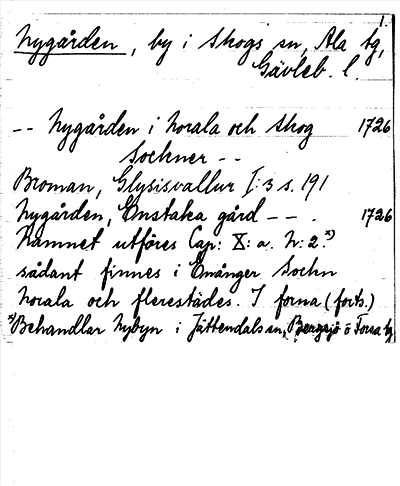 1.
Nygården, by i Skogs sn, Ala tg,
Gävleb. l.
-- Nygården i Norala och Skog 1726
Sochner --
Broman, Glysisvallur I:3 s. 191
Nygården, Enstaka gård -- . 1726
Namnet utföres Cap: X: a. N: 2.x)
sådant finnes i Enånger Sochn
Norala och flerestädes. I forna (forts.)
x) Behandlar Nybyn i Jättendals sn, Bergsjö o Forsa tg